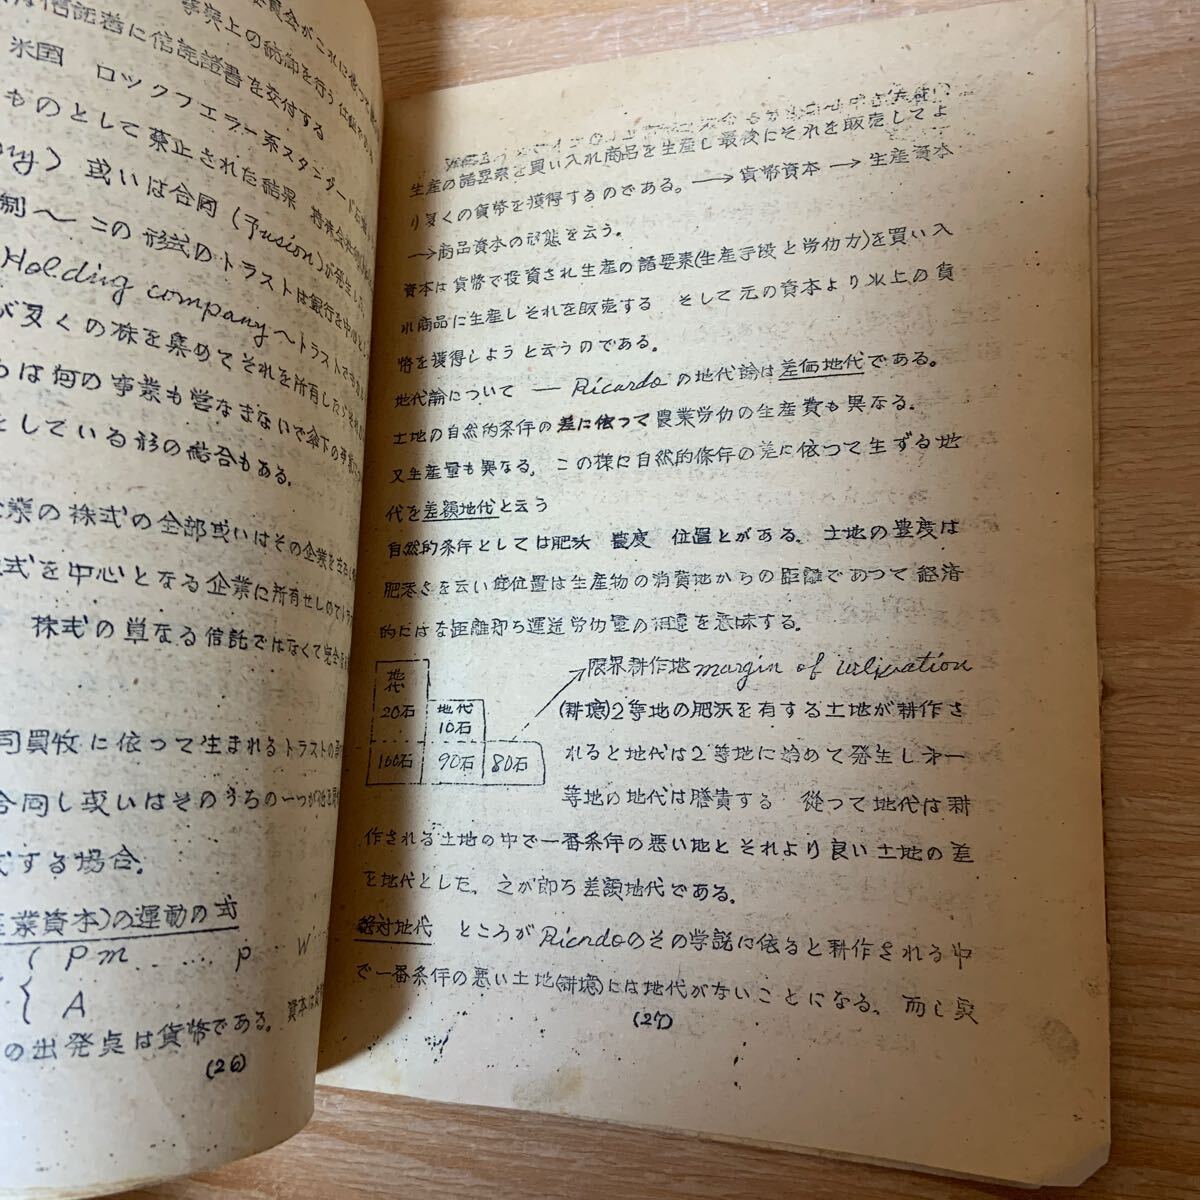 米国 ロックフエラー系スタンダード石油
ものとして禁止された結果
或いは合同(Fusion)が発生した
制〜この形式のトラストは銀行を中心とし
Holding company〜トラストです
が多くの株を集めてそれを所有した
らは何の事業も営なまないで傘下の事業
としている形の結合もある.
業の株式の全部或いはその企業を
式を中心となる企業に所有せしめて
株式の単なる信託ではなくて完全
司買收に依って生まれるトラストの
合同し或いはそのうちの一つが
する場合.
業資本)の運動の式
{ Pm ...... P W'
{ A
の出発点は貨幣である。資本は
(26)
生産の諸要素を買い入れ商品を生産し最後にそれを販売してよ
り多くの貨幣を獲得するのである。→貨幣資本→生産資本
→商品資本の形態を云う。
資本は貨幣で投資され生産の諸要素(生産手段と労仂力)を買い入
れ商品に生産しそれを販売する そして元の資本より以上の貨
幣を獲得しようと云うのである。
地代論について — Ricardoの地代論は差価地代である。
土地の自然的条件の差に依って農業労仂の生産費も異なる。
又生産量も異なる。この様に自然的條件の差に依つて生ずる地
代を差額地代と云う
自然的条件としては肥沃 豊度 位置とがある。土地の豊度は
肥沃さを云い 位置は生産物の消費地からの距離であつて経済
的には 距離即ち運送労仂量の相違を意味する。
地代
20石
地代
10石
100石 90石 80石
限界耕作地 margin of
(耕境)2等地の肥沃を有する土地が耕作さ
れると地代は2等地に始めて発生し才一
等地の地代は謄貴する 從つて地代は耕
作される土地の中で一番条件の悪い地とそれより良い土地の差
を地代とした。之が即ち差額地代である。
絶対地代 ところがRicardoのその学説に依ると耕作される中
で一番条件の悪い土地(耕境)には地代がないことになる。而し実
(27)